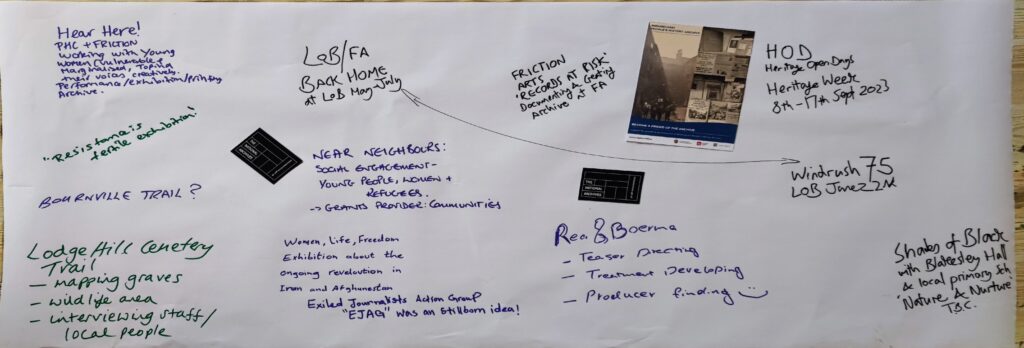 Hear Here!
PHC + FRICTION
Working with Young
Women (vulnerable &
Marginalised,
their voices creatively.
Performance/exhibition/printing
Archive.
"Resistance is
fertile exhibition"
BOURNVILLE TRAIL?
Lodge Hill Cemetery
Trail
- mapping graves
- wildlife area
- interviewing staff/
local people
LoB/FA
BACK HOME
at LoB Mag July
NEAR NEIGHBOURS:
SOCIAL ENGAGEMENT -
YOUNG PEOPLE, WOMEN +
REFUGEES.
-> GRANTS PROVIDER: COMMUNITIES
Women, Life, Freedom
Exhibition about the
ongoing revolution in
Iran and Afghanestan
Exiled Journalists Action Group
"EJAG" was an stillborn idea!
FRICTION
ARTS
'RECORDS AT RISK'
Documenting &
Archive at FA
THE
NATIONAL
ARCHIVES
Boerma
- Teaser Directing
- Treatment Developing
- Producer finding
HOD
Heritage Open Days
Heritage Week
8th - 17th Sept 2023
Windrush 75
LOB June 22nd
Shades of Black
with Blakesley Hall
& local primary sch
'Nature & Nurture'
T.B.C.